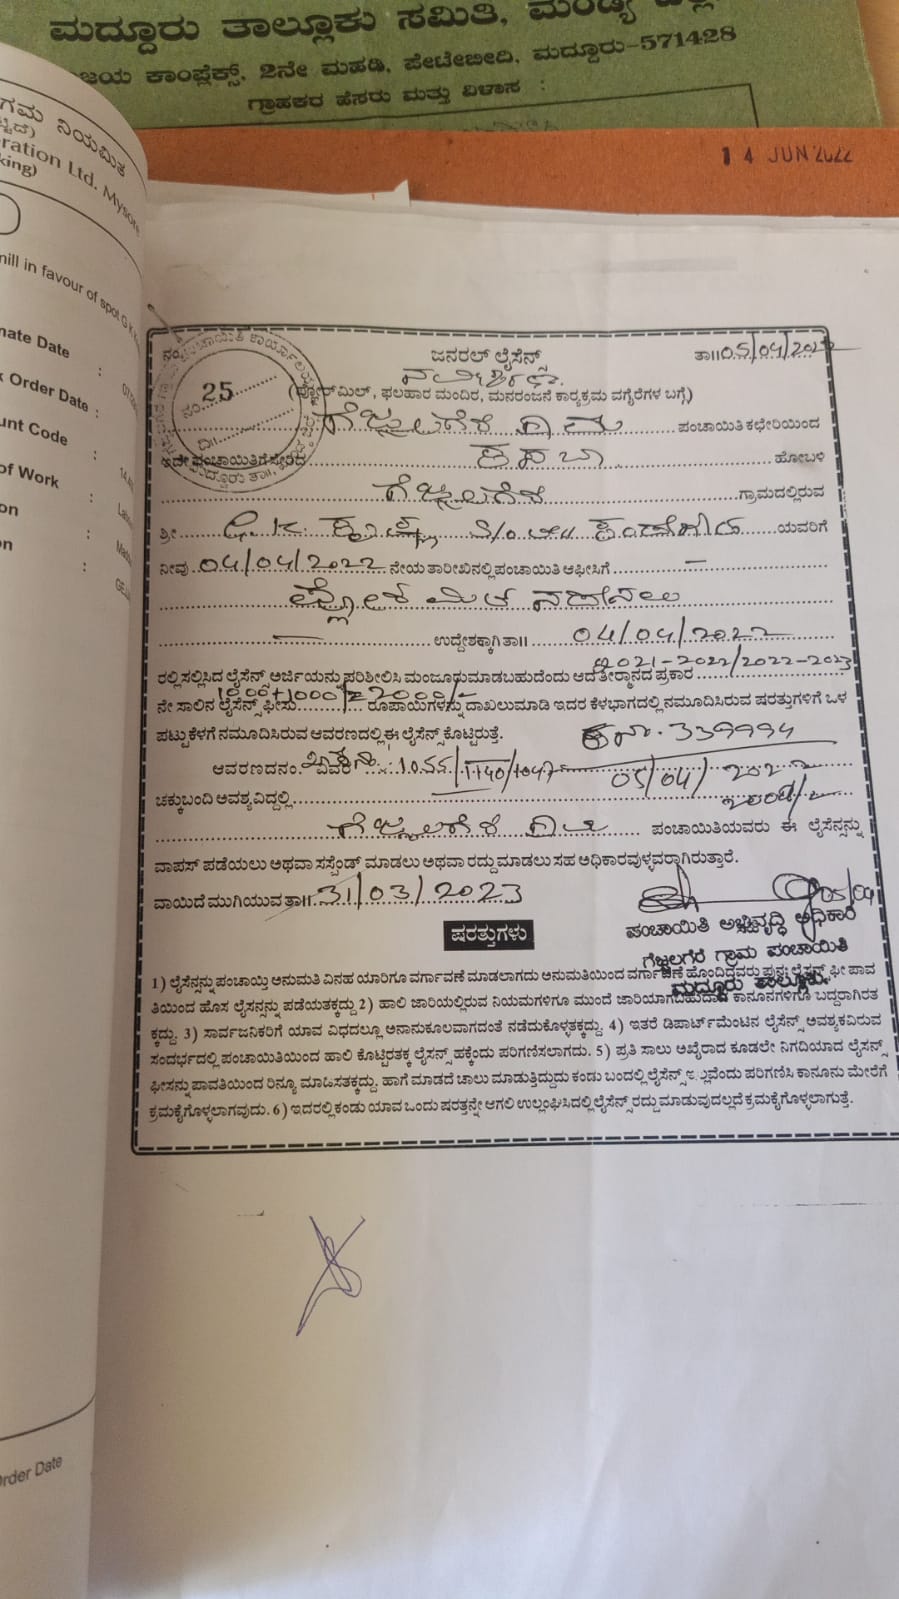 ಮದ್ದೂರು ತಾಲ್ಲೂಕು ಸಮಿತಿ, ಮಂಡ್ಯ
ಜಯ ಕಾಂಪ್ಲೆಕ್ಸ್, 2ನೇ ಮಹಡಿ, ಪೇಟೇಬೀದಿ, ಮದ್ದೂರು-571428
ಗ್ರಾಹಕರ ಹೆಸರು ಮತ್ತು ವಿಳಾಸ :
14 JUN 2022
ಗಮ ನಿಯಮಿತ
ration Ltd. Mysore
king)
mill in favour of spot G K
mate Date :
k Order Date :
unt Code :
of Work :
on :
on :
Order Date
ನಂ. 25
ಜನರಲ್ ಲೈಸೆನ್ಸ್
ತಾ॥ 05/04/2022
(ಫ್ಲೋರ್‌ಮಿಲ್, ಫಲಹಾರ ಮಂದಿರ, ಮನರಂಜನೆ ಕಾರ್‍ಯಕ್ರಮ ವಗೈರೆಗಳ ಬಗ್ಗೆ)
ಗೆಜ್ಜಲಗೆರೆ ಗ್ರಾಮ ಪಂಚಾಯಿತಿ ಕಛೇರಿಯಿಂದ
ಇದೇ ಪಂಚಾಯಿತಿಗೆ ಸೇರಿದ ಕಸಬಾ ಹೋಬಳಿ
ಗೆಜ್ಜಲಗೆರೆ ಗ್ರಾಮದಲ್ಲಿರುವ
ಶ್ರೀ G.K. ಕೃಷ್ಣ S/o ಯವರಿಗೆ
ನೀವು 04/04/2022 ನೇಯ ತಾರೀಖಿನಲ್ಲಿ ಪಂಚಾಯಿತಿ ಆಫೀಸಿಗೆ –
ಫ್ಲೋರ್ ಮಿಲ್ ನಡೆಸಲು
– ಉದ್ದೇಶಕ್ಕಾಗಿ ತಾ॥ 04/04/2022
ರಲ್ಲಿ ಸಲ್ಲಿಸಿದ ಲೈಸೆನ್ಸ್ ಅರ್ಜಿಯನ್ನು ಪರಿಶೀಲಿಸಿ ಮಂಜೂರುಮಾಡಬಹುದೆಂದು ಆದ ತೀರ್ಮಾನದ ಪ್ರಕಾರ 2021-2022/2022-2023
ನೇ ಸಾಲಿನ ಲೈಸೆನ್ಸ್ ಫೀಸು 1000+1000=2000/- ರೂಪಾಯಿಗಳನ್ನು ದಾಖಲುಮಾಡಿ ಇದರ ಕೆಳಭಾಗದಲ್ಲಿ ನಮೂದಿಸಿರುವ ಷರತ್ತುಗಳಿಗೆ ಒಳ
ಪಟ್ಟು ಕೆಳಗೆ ನಮೂದಿಸಿರುವ ಆವರಣದಲ್ಲಿ ಈ ಲೈಸೆನ್ಸ್ ಕೊಟ್ಟಿರುತ್ತೆ. 339994
ಆವರಣದ ನಂ. ವಿವರ 05/04/2022
ಚಕ್ಕುಬಂದಿ ಅವಶ್ಯವಿದ್ದಲ್ಲಿ 2000/-
ಗೆಜ್ಜಲಗೆರೆ ಗ್ರಾಮ ಪಂಚಾಯಿತಿಯವರು ಈ ಲೈಸೆನ್ಸನ್ನು
ವಾಪಸ್ ಪಡೆಯಲು ಅಥವಾ ಸಸ್ಪೆಂಡ್ ಮಾಡಲು ಅಥವಾ ರದ್ದು ಮಾಡಲು ಸಹ ಅಧಿಕಾರವುಳ್ಳವರಾಗಿರುತ್ತಾರೆ.
ವಾಯಿದೆ ಮುಗಿಯುವ ತಾ॥ 31/03/2023
ಪಂಚಾಯಿತಿ ಅಭಿವೃದ್ಧಿ ಅಧಿಕಾರಿ
ಗೆಜ್ಜಲಗೆರೆ ಗ್ರಾಮ ಪಂಚಾಯಿತಿ
ಮದ್ದೂರು ತಾಲ್ಲೂಕು.
ಷರತ್ತುಗಳು
1) ಲೈಸೆನ್ಸನ್ನು ಪಂಚಾಯ್ತಿ ಅನುಮತಿ ವಿನಹ ಯಾರಿಗೂ ವರ್ಗಾವಣೆ ಮಾಡಲಾಗದು ಅನುಮತಿಯಿಂದ ವರ್ಗಾವಣೆ ಹೊಂದಿದ್ದವರು ಪುನಃ ಲೈಸೆನ್ಸ್ ಫೀ ಪಾವ
ತಿಯಿಂದ ಹೊಸ ಲೈಸನ್ಸನ್ನು ಪಡೆಯತಕ್ಕದ್ದು 2) ಹಾಲಿ ಜಾರಿಯಲ್ಲಿರುವ ನಿಯಮಗಳಿಗೂ ಮುಂದೆ ಜಾರಿಯಾಗಬಹುದಾದ ಕಾನೂನಗಳಿಗೂ ಬದ್ದರಾಗಿರತ
ಕ್ಕದ್ದು. 3) ಸಾರ್ವಜನಿಕರಿಗೆ ಯಾವ ವಿಧದಲ್ಲೂ ಅನಾನುಕೂಲವಾಗದಂತೆ ನಡೆದುಕೊಳ್ಳತಕ್ಕದ್ದು. 4) ಇತರೆ ಡಿಪಾರ್ಟ್‌ಮೆಂಟಿನ ಲೈಸೆನ್ಸ್ ಅವಶ್ಯಕವಿರುವ
ಸಂದರ್ಭದಲ್ಲಿ ಪಂಚಾಯಿತಿಯಿಂದ ಹಾಲಿ ಕೊಟ್ಟಿರತಕ್ಕ ಲೈಸೆನ್ಸ್ ಹಕ್ಕೆಂದು ಪರಿಗಣಿಸಲಾಗದು. 5) ಪ್ರತಿ ಸಾಲು ಅಖೈರಾದ ಕೂಡಲೇ ನಿಗದಿಯಾದ ಲೈಸನ್ಸ್
ಫೀಸನ್ನು ಪಾವತಿಯಿಂದ ರಿನ್ಯೂ ಮಾಡಿಸತಕ್ಕದ್ದು. ಹಾಗೆ ಮಾಡದೆ ಚಾಲು ಮಾಡುತ್ತಿದ್ದುದು ಕಂಡು ಬಂದಲ್ಲಿ ಲೈಸೆನ್ಸ್ ಇಲ್ಲವೆಂದು ಪರಿಗಣಿಸಿ ಕಾನೂನು ಮೇರೆಗೆ
ಕ್ರಮಕೈಗೊಳ್ಳಲಾಗವುದು. 6) ಇದರಲ್ಲಿ ಕಂಡು ಯಾವ ಒಂದು ಷರತ್ತನ್ನೇ ಆಗಲಿ ಉಲ್ಲಂಘಿಸಿದಲ್ಲಿ ಲೈಸೆನ್ಸ್ ರದ್ದು ಮಾಡುವುದಲ್ಲದೆ ಕ್ರಮಕೈಗೊಳ್ಳಲಾಗುತ್ತೆ.